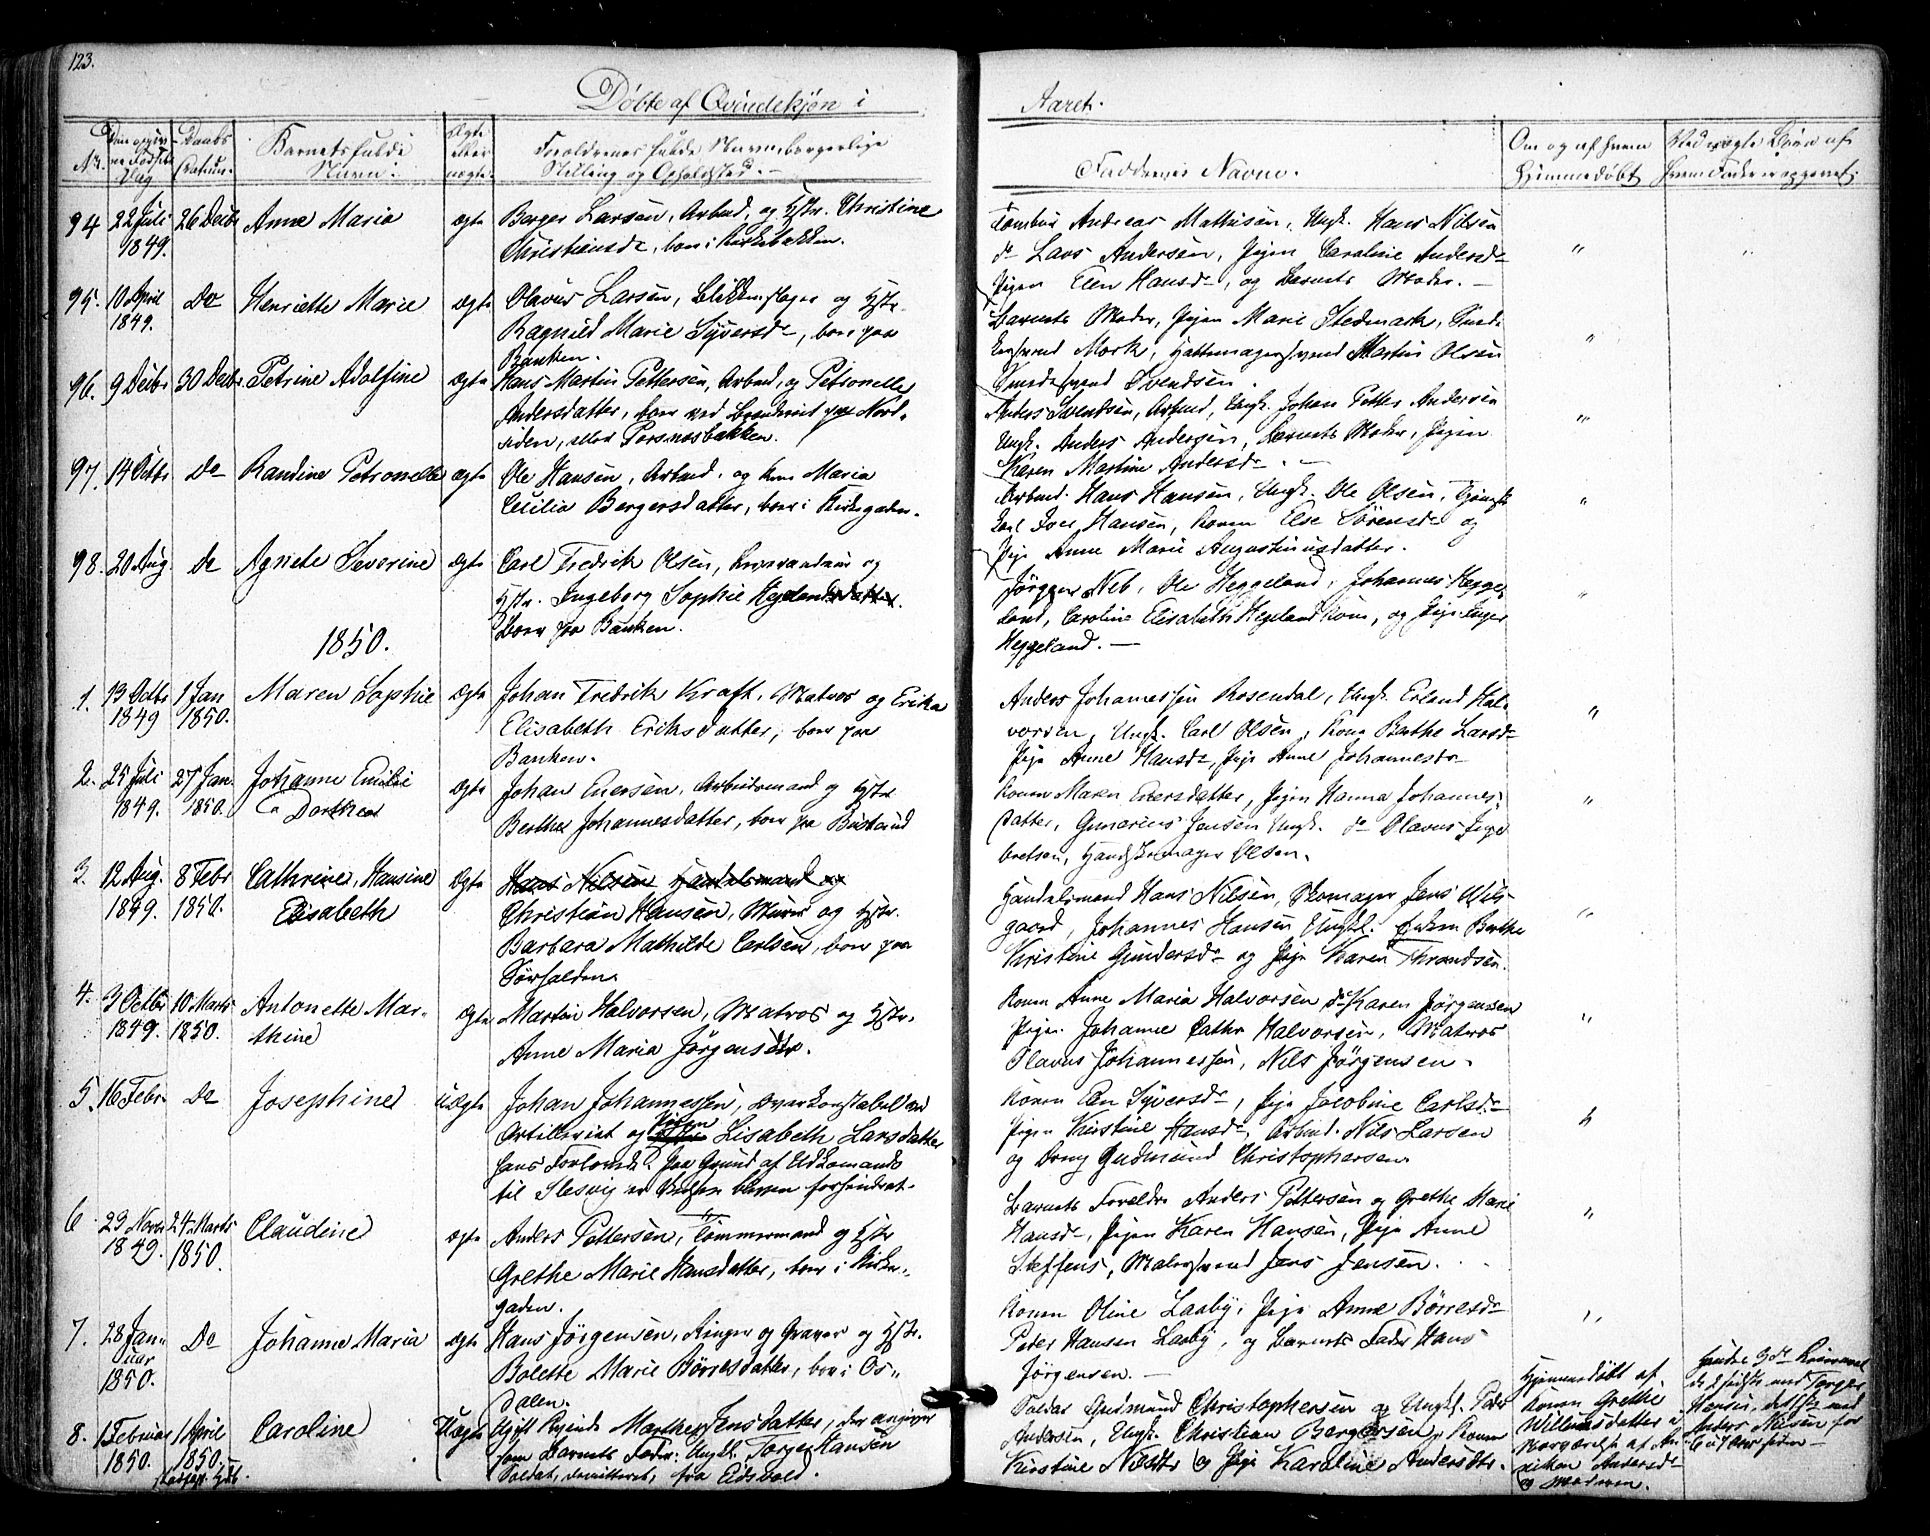 123.
Døbte af Qvindekjøn i
Aaret.
No.
Den opgivne Fødsels Dag
Daabs Datum.
Barnets fulde Navn.
Ægte eller uægte.
Forældrenes fulde Navn, borgerlige Stilling og Opholdsted.
Faddernes Navne.
Om og af hvem Hjemmedøbt
Ved uægte Børn af hvem Fader er opgivet.
94 22 Juli 1849. 26 Decbr Anne Maria ægte Berger Larsen, Arbmd, og Hstr. Christine
Christiansdr, boer i Kirkebakken.
Andreas Mathisen, Ungk. Hans Nilsen
do Lars Andersen, Pigen Caroline Andersdr
Pigen Elen Hansdr, og Barnets Moder.
95. 10 April 1849. Do Henriette Marie ægte Olavus Larsen, Blikkenslager og Hstr.
Ragnild Marie Syversdr, boer paa
Banken.
Barnets Moder, Pigen Marie Stedmark, Smede
svend Mork, Hattemagersvend Martin Olsen
Smedesvend Svendsen.
96. 9 Decbr 30 Decbr. Petrine Adolfine ægte Hans Martin Pettersen, Arbmd, og Petronelle
Andersdatter, boer ved Brænderiet paa Nord-
siden, eller Porsnesbakken.
Anders Svendsen, Arbmd, Ungk. Johan Petter Andersen
Ungk. Anders Andersen, Barnets Moder, Pigen
Karen Martine Andersdr.
97. 14 Octbr. Do Randine Petronelle ægte Ole Hansen, Arbmd. og Kone Maria
Cecilia Bergersdatter, boer i Kirkegaden.
Arbmd. Hans Hansen, Ungk. Ole Olsen, Tjeneste
karl Iver Hansen, Konen Else Sørensdr og
Pige Anne Marie Augustinusdatter.
98. 20 Aug. Do Agnete Severine ægte Carl Fredrik Olsen, og
Hstr. Ingeborg Sophie Hegelandsdatter.
boer paa Banken.
Jørgen Neb, Ole Heggeland, Johannes Hegge
land, Caroline Elisabeth Hegeland Kone, og Pige Inger
Heggeland.
1850.
1. 13 Octbr 1849 1 Jan 1850. Maren Sophie ægte Johan Fredrik Kraft, Matros og Erika
Elisabeth Eriksdatter, boer paa
Banken.
Anders Johannessen Rosendal, Ungk. Erland Hal-
vorsen, Ungk. Carl Olsen, Kone Berthe Larsdr
Pige Anne Hansdr, Pige Anne Johannesdr
2. 25 Juli 1849. 27 Jan. 1850. Johanne Emilie
Dorthea ægte Johan Evensen, Arbeidsmand og Hstr
Berthe Johannesdatter, boer paa Bustand
Konen Maren Eversdatter, Pigen Hanna Johannes-
datter, Gunarius Jensen Ungk. do Olavus Inge
bretsen, Handskemager Olsen.
3. 12 Aug. 1849. 8 Febr 1850. Cathrine, Hansine
Elisabeth Ægte Hans Nilsen Handelsmand og
Christian Hansen, Murer og Hstr.
Barbara Mathilde Carlsen, boer paa
Sørhalden
Handelsmand Hans Nilsen, Skomager Jens Wils-
gaard, Johannes Hansen Ungk. Berthe
Kristine Gundersdr og Pige Karen Thrandsen.
4. 3 Octbr 1849. 10 Marts 1850. Antonette Mar-
thine ægte Martin Halvorsen, Matros og Hstr.
Anne Maria Jørgensdtr.
Konen Anne Maria Halvorsen do Karen Jørgensen
Pigen Johanne Cathr Halvorsen, Matros
Olavus Johannessen, Nils Jørgensen.
5. 16 Febr. Do Josephine uægte Johan Johannessen, Overkonstabel ved
Artilleriet og Pigen Lisabeth Larsdatter
hans Forlovede. Paa Grund af Udkomando
til Slesvig er Vielsen bleven forhindret.
Konen Syversdr, Pige Jacobine Carlsdr
Pigen Kirstine Hansdr, Arbmd. Nils Larsen
og Gudmund Christophersen
6. 23 Novbr 1849. 24 Marts 1850. Claudine ægte Anders Pettersen, Tømmermand og Hstr
Grethe Marie Hansdatter, boer i Kirke-
gaden.
Barnets Forældre Anders Pettersen og Grethe Marie
Hansdr, Pigen Karen Hansen, Pige Anne
Steffens, Malersvend Jens Jensen.
7. 28 Januar 1850. Do Johanne Maria ægte Hans Jørgensen, Ringer og Graver og Hstr.
Bolette Marie Børresdatter, boer i Os-
dalen.
Konen Oline Laaby, Pige Anne Børresdr
Peder Hansen Laaby, og Barnets Fader Hans
Jørgensen.
8. 1 Februar 1850. 1 April 1850. Caroline Uægte Gift Qvinde Marthe Jensdatter, der angiver
som Barnets Fader: Ungk. Torger Hansen
Soldat, fra Eidsvold.
Soldat Gudmund Christophersen og Ungk. Peder
Andersen, Ungk. Christian Bergersen, Konen
Kirstine Nilsdtr og Pige Karoline Andersdtr.
Hjemmedøbt af
Konen Grethe
Willumsdatter i
af An
Andersdr
og Moderen.